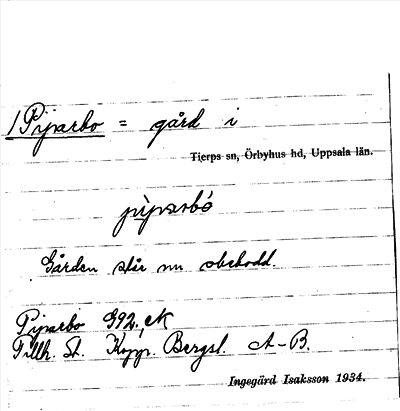 Piparbo = gård i
Tierps sn, Örbyhus hd, Uppsala län.
pìparbó
Gården står nu obebodd.
Piparbo G92, N
Tillh. St. Kopp. Bergsl. A-B.
Ingegärd Isaksson 1934.